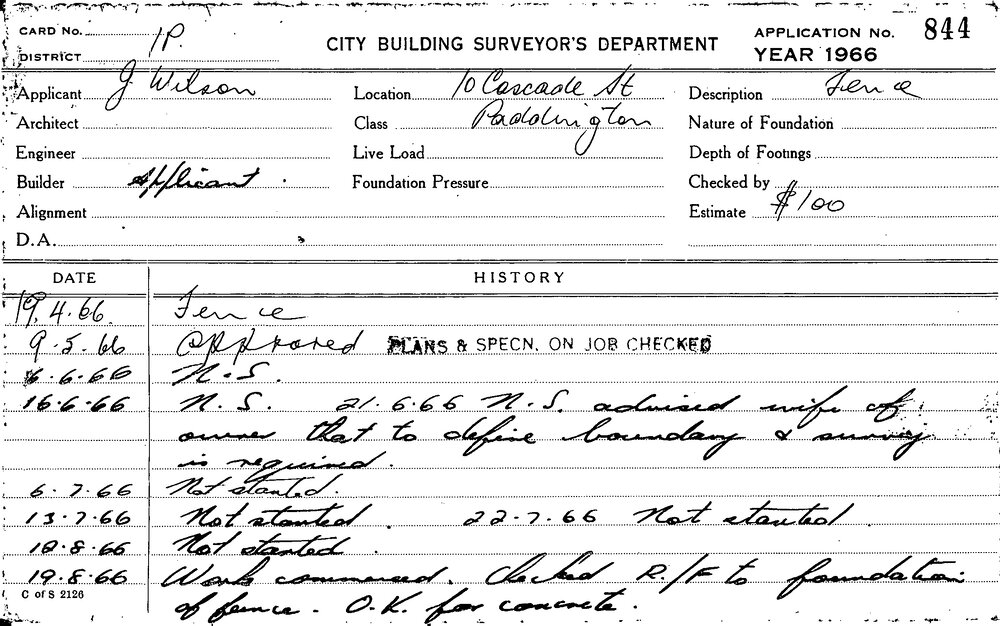 CARD No. 1P.
DISTRICT
CITY BUILDING SURVEYOR'S DEPARTMENT
APPLICATION No. 844
YEAR 1966
Applicant J Wilson
Location 10 Cascade St
Description Fence
Architect
Class Paddington
Nature of Foundation
Engineer
Live Load
Depth of Footings
Builder Applicant.
Foundation Pressure
Checked by
Alignment
Estimate $100
D.A.
DATE HISTORY
19.4.66. Fence
9.5.66 Approved PLANS & SPECN. ON JOB CHECKED
6.6.66 N.S.
16.6.66 N.S. 21.6.66 N.S. advised wife of
owner that to define boundary a survey
is required.
6.7.66 Not started.
13.7.66 Not started. 22.7.66 Not started.
12.8.66 Not started.
19.8.66 Work commenced. Checked R./F to foundation
C of S 2126
of fence. O.K. for concrete.